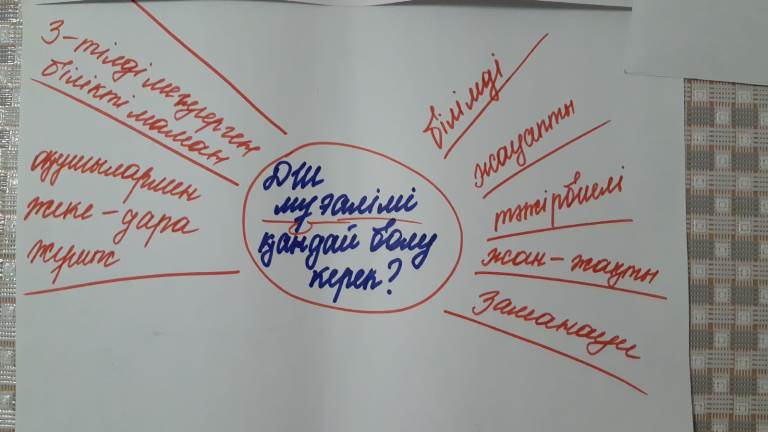 3-тілді меңгерген
білікті маман
оқушылармен
жеке-дара
жұмыс
ДШ
мұғалімі
қандай болу
керек?
білімді
жауапты
тәжірбиелі
жан-жақты
Заманауи